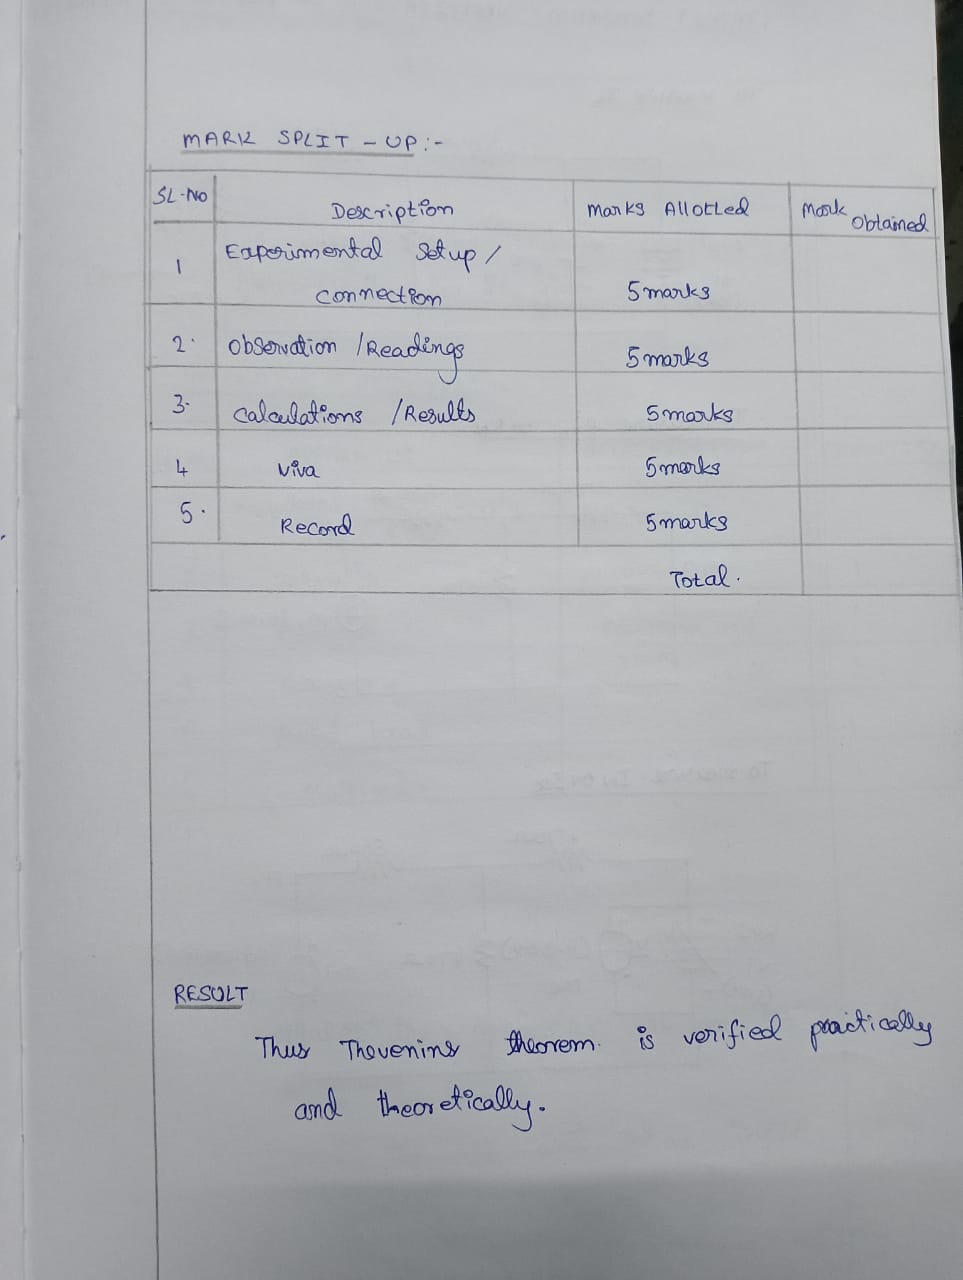 MARK SPLIT - UP :-
SL.NO Description Marks Allotted Mark Obtained
1 Experimental Setup /
connection 5 marks
2. Observation / Readings 5 marks
3. Calculations / Results 5 marks
4 Viva 5 marks
5. Record 5 marks
Total.
RESULT
Thus Thevenins theorem. is verified practically
and theoretically.